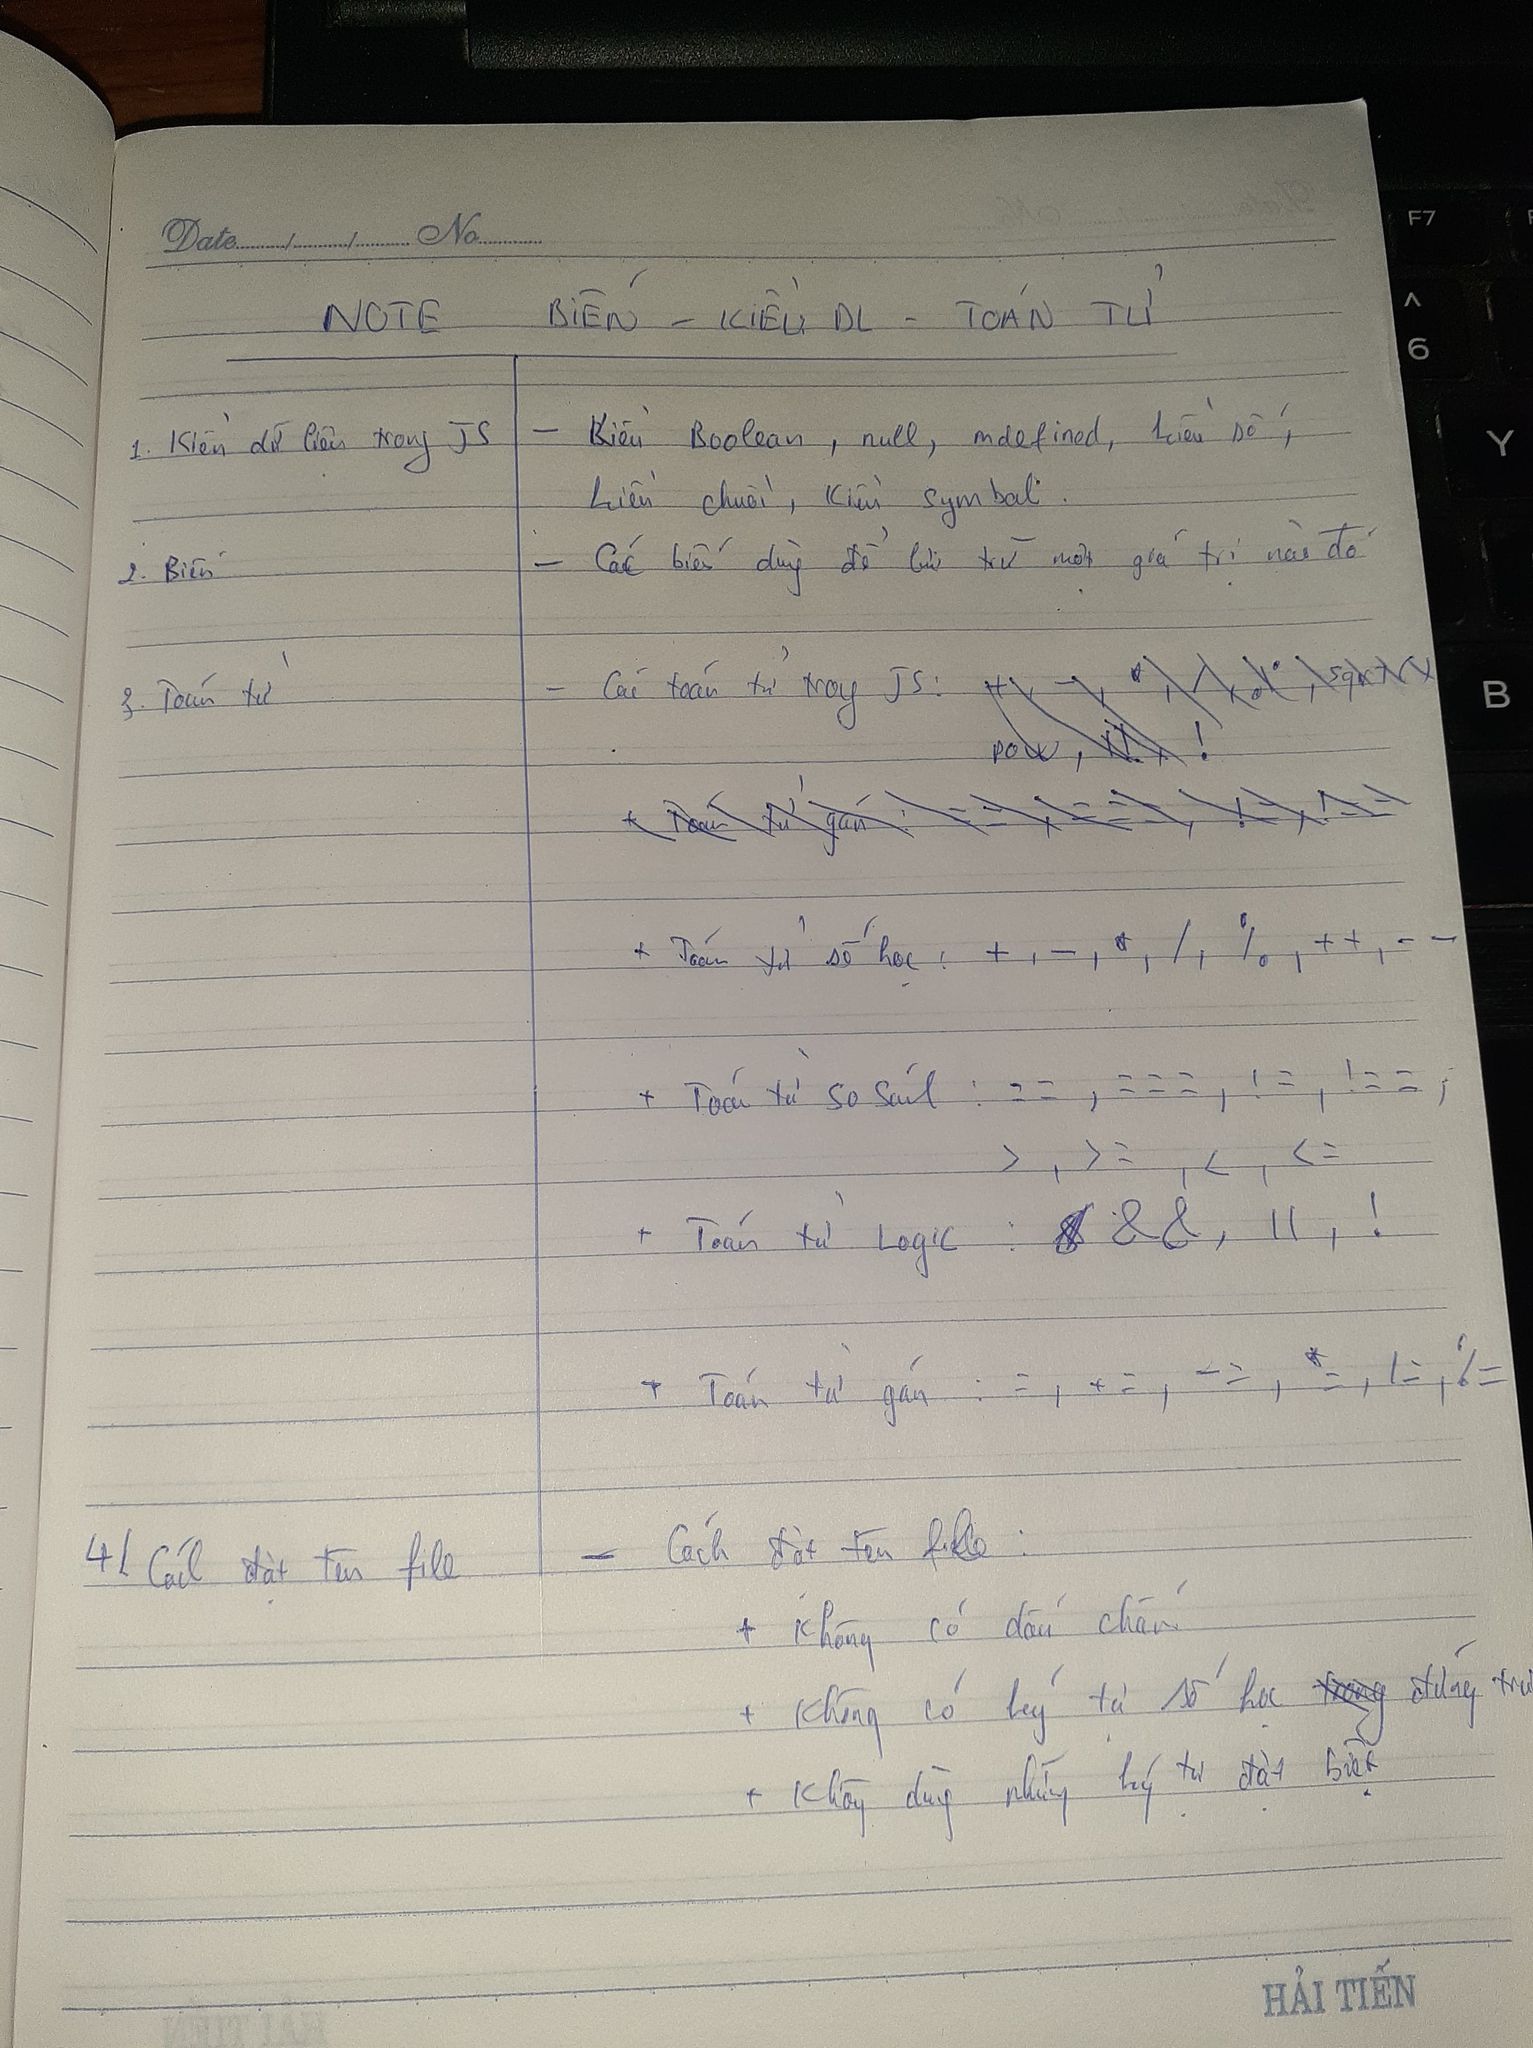 Date......../......../........ No............
NOTE BIẾN - KIỂU DL - TOÁN TỬ
1. Kiểu dữ liệu trong JS - Kiểu Boolean, null, undefined, kiểu số,
kiểu chuỗi, Kiểu symbal.
2. Biến - Các biến dùng để lưu trữ một giá trị nào đó
3. Toán tử - Các toán tử trong JS: +, -, *, /, %, sqrt
pow, !
+ Toán tử gán : ==, ===, !=, !==
+ Toán tử số học : +, -, *, /, %, ++, --
+ Toán tử so sánh : ==, ===, !=, !==,
>, >=, <, <=
+ Toán tử Logic : &&, ||, !
+ Toán tử gán : =, +=, -=, *=, /=, %=
4/ Cách đặt tên file - Cách đặt tên file :
+ Không có dấu chấm
+ Không có ký tự số học trong đứng trư
+ Không dùng những ký tự đặt biệt
HẢI TIẾN